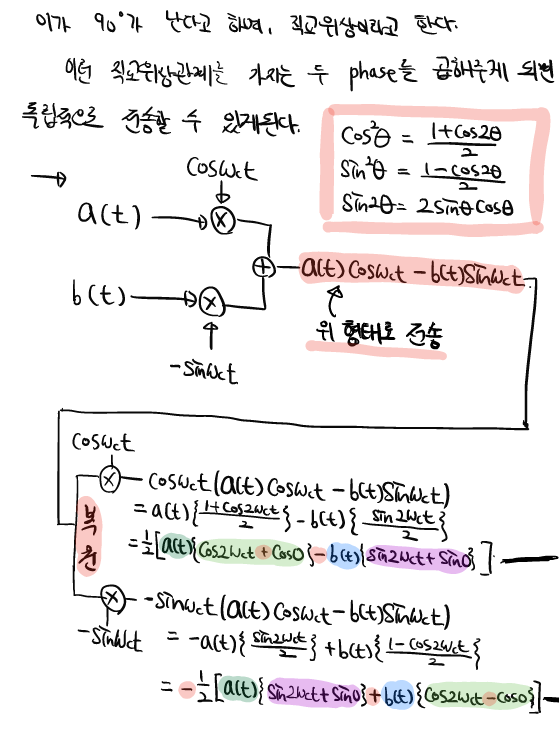 이가 90°가 난다고 하며, 직교위상이라고 한다.
이런 직교위상관계를 가지는 두 phase를 곱해주게 되면
독립적으로 전송할 수 있게된다.
cos²θ = (1+cos2θ)/2
sin²θ = (1-cos2θ)/2
sin2θ = 2sinθcosθ
→ cosω_ct
a(t) → ⊗
⊕ a(t)cosω_ct - b(t)sinω_ct
b(t) → ⊗
위 형태로 전송
-sinω_ct
cosω_ct
⊗ cosω_ct(a(t)cosω_ct - b(t)sinω_ct)
= a(t){(1+cos2ω_ct)/2} - b(t){sin2ω_ct/2}
복원
= 1/2[a(t){cos2ω_ct + cos0} - b(t){sin2ω_ct + sin0}]
⊗ -sinω_ct(a(t)cosω_ct - b(t)sinω_ct)
-sinω_ct
= -a(t){sin2ω_ct/2} + b(t){(1-cos2ω_ct)/2}
= -1/2[a(t){sin2ω_ct + sin0} + b(t){cos2ω_ct - cos0}]